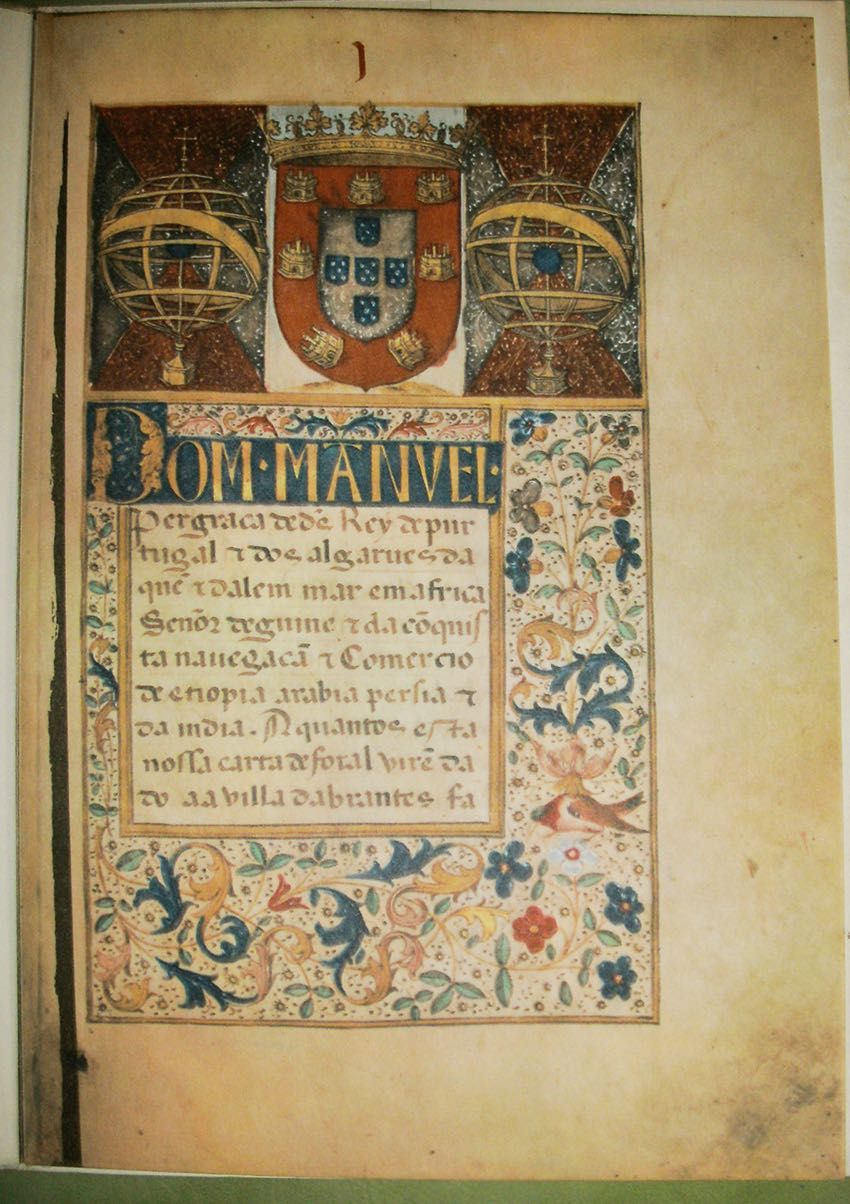 DOM · MANVEL ·
Per graca de dẽ Rey de pur
tugal ⁊ dos algarues da
quẽ ⁊ dalem mar em africa
Senõr de guine ⁊ da cõquis
ta nauegacã ⁊ Comercio
de etiopia arabia persia ⁊
da india. A quantos esta
nossa carta de foral virẽ da
do aa villa dabrantes fa